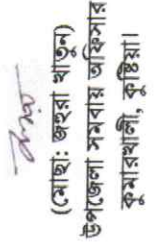 (মোছা: জহুরা খাতুন)
উপজেলা সমবায় অফিসার
কুমারখালী, কুষ্টিয়া।